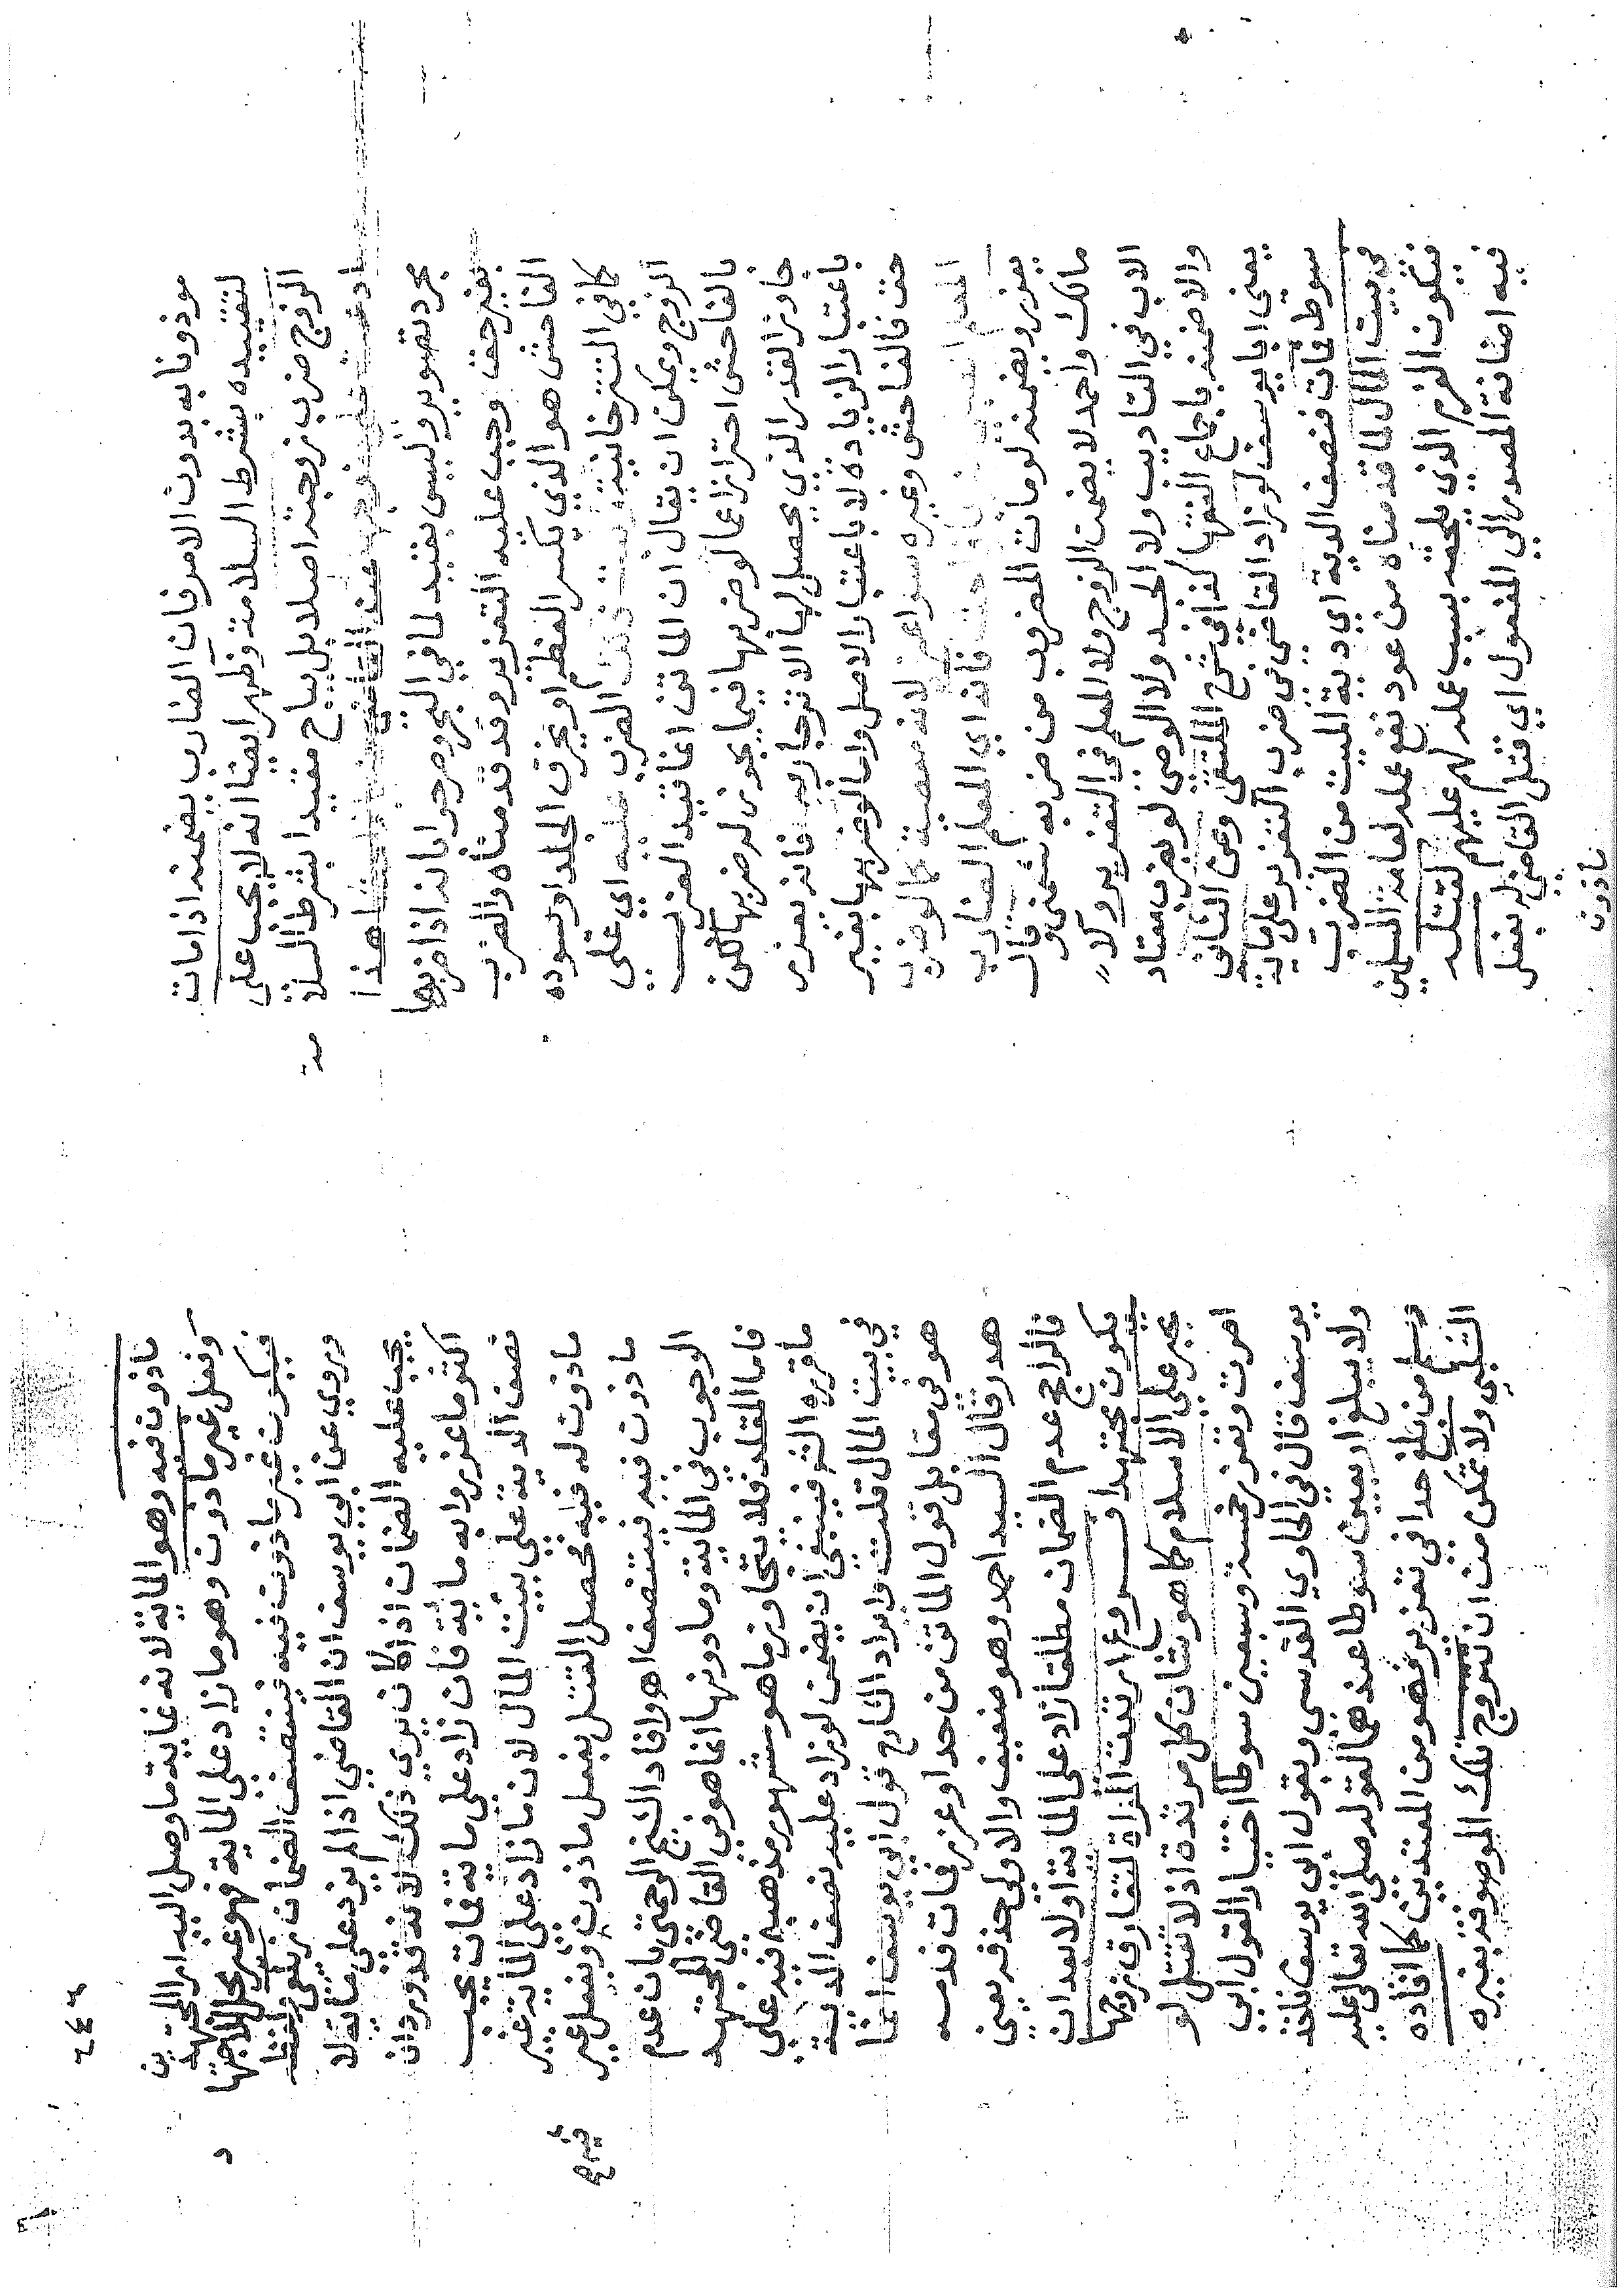 موذونا به بدون الامر فان الضارب يضمنه اذا مات
لتقييده بشرط السلامة وظهر ايضا انه لا يجب على
الزوج ضرب زوجته اصلا بل يباح مقيدا بشرط السلا
مة
ادعت على زوجها هذا
مجرد تصوير وليس بقيد لما في البحر وصرحوا بانه اذا ضربها
بغير حق وجب عليه التعزير وقد قدمناه والضرب
الفاحش هو الذي يكسر العظم او يخرق الجلد او يسوده
كما في التترخانية الضرب عليه اي على
الزوج ويمكن ان يقال ان الماتن انما قيد الضرب
بالفاحش احترازا عما لو ضربها فيما يجوز له ضربها لكن
جاوز القدر الذي يحصل لها الانزجار به فانه يعزر
باعتبار الزيادة لا باعتبار الاصل واما لو ضربها بغير
حق فالفاحش وغيره سواء لانه معصية كما لو ضرب
المعلم فانه اي المعلم الضارب
يعزر ويضمنه لو مات المضروب من ضربه شمني وقال
مالك واحمد لا يضمن الزوج ولا المعلم في التعزير ولا
الاب في التاديب ولا الجد ولا الوصي لو بضرب معتاد
والا ضمنه باجماع الفقها كذا في شرح الملتقى وعن الثاني
يعني ابا يوسف لو زاد القاضي في ضرب التعزير على ماية
سوط فمات فنصف الدية اي دية الميت من الضرب
في بيت المال لما قدمناه من عود نفع عمله لعامة المسلمين
فيكون الغرم الذي يلحقه بسبب عمله لهم عليهم لقتله
فيه اضافة المصدر الى المفعول اي قتل القاضي له بفعل
ماذون
٢٤٢
ماذون فيه وهو الماية لانه غاية ما وصل اليه امر المجتهدين
وفعل غير ماذون وهو ما زاد على الماية فهو غير محل للاجتها
د
فيكون غير ماذون فيه فينتصف الضمان زيلعي ولفظه
وروي عن ابي يوسف ان القاضي اذا لم يزد على ماية لا
يجب عليه الضمان اذا كان يرى ذلك لانه قد ورد ان
اكثر ما عزروا به ماية فان زاد على ماية فمات يجب
نصف الدية على بيت المال لان ما زاد على الماية غير
ماذون له فيه فحصل القتل بفعل ماذون وبفعل غير
ماذون فيه فينتصف اهـ وافاد الشيخ الرحمتي بان عدم
الوجوب في الماية وما دونها انما هو في القاضي المجتهد
فاما المقلد فلا يتجاوز ما هو مشهور مذهبه فيرد على
ما قرره الشرفينبغي ان يضمن لو زاد عليه نصف الدية
في بيت المال قلت وايراد الشارح قول ابي يوسف انما
هو في مقابل قول الماتن من حد او عزر فمات فدمه
هدر قال السيد احمد وهو ضعيف والاولى حذفه يعني
فالراجح عدم الضمان مطلقا زاد على الماية اولا بعد ان
يكون مجتهدا فروع ارتدت المراة لتفارق زوجها
تجبر على الاسلام كما هو شان كل مرتدة اذ لا تقتل لو
اصرت وتعزر خمسة وسبعين سوطا اختيار القول ابي
يوسف قال في الحاوي القدسي وبقول ابي يوسف ناخذ
ولا يبلغ اربعين سوطا عندهما لقوله صلى الله تعالى عليه
وسلم من بلغ حدا في غير حد فهو من المعتدين كما افاده
الشلبي ولا تمكن من ان تتزوج تلك الموصوفة بغيره